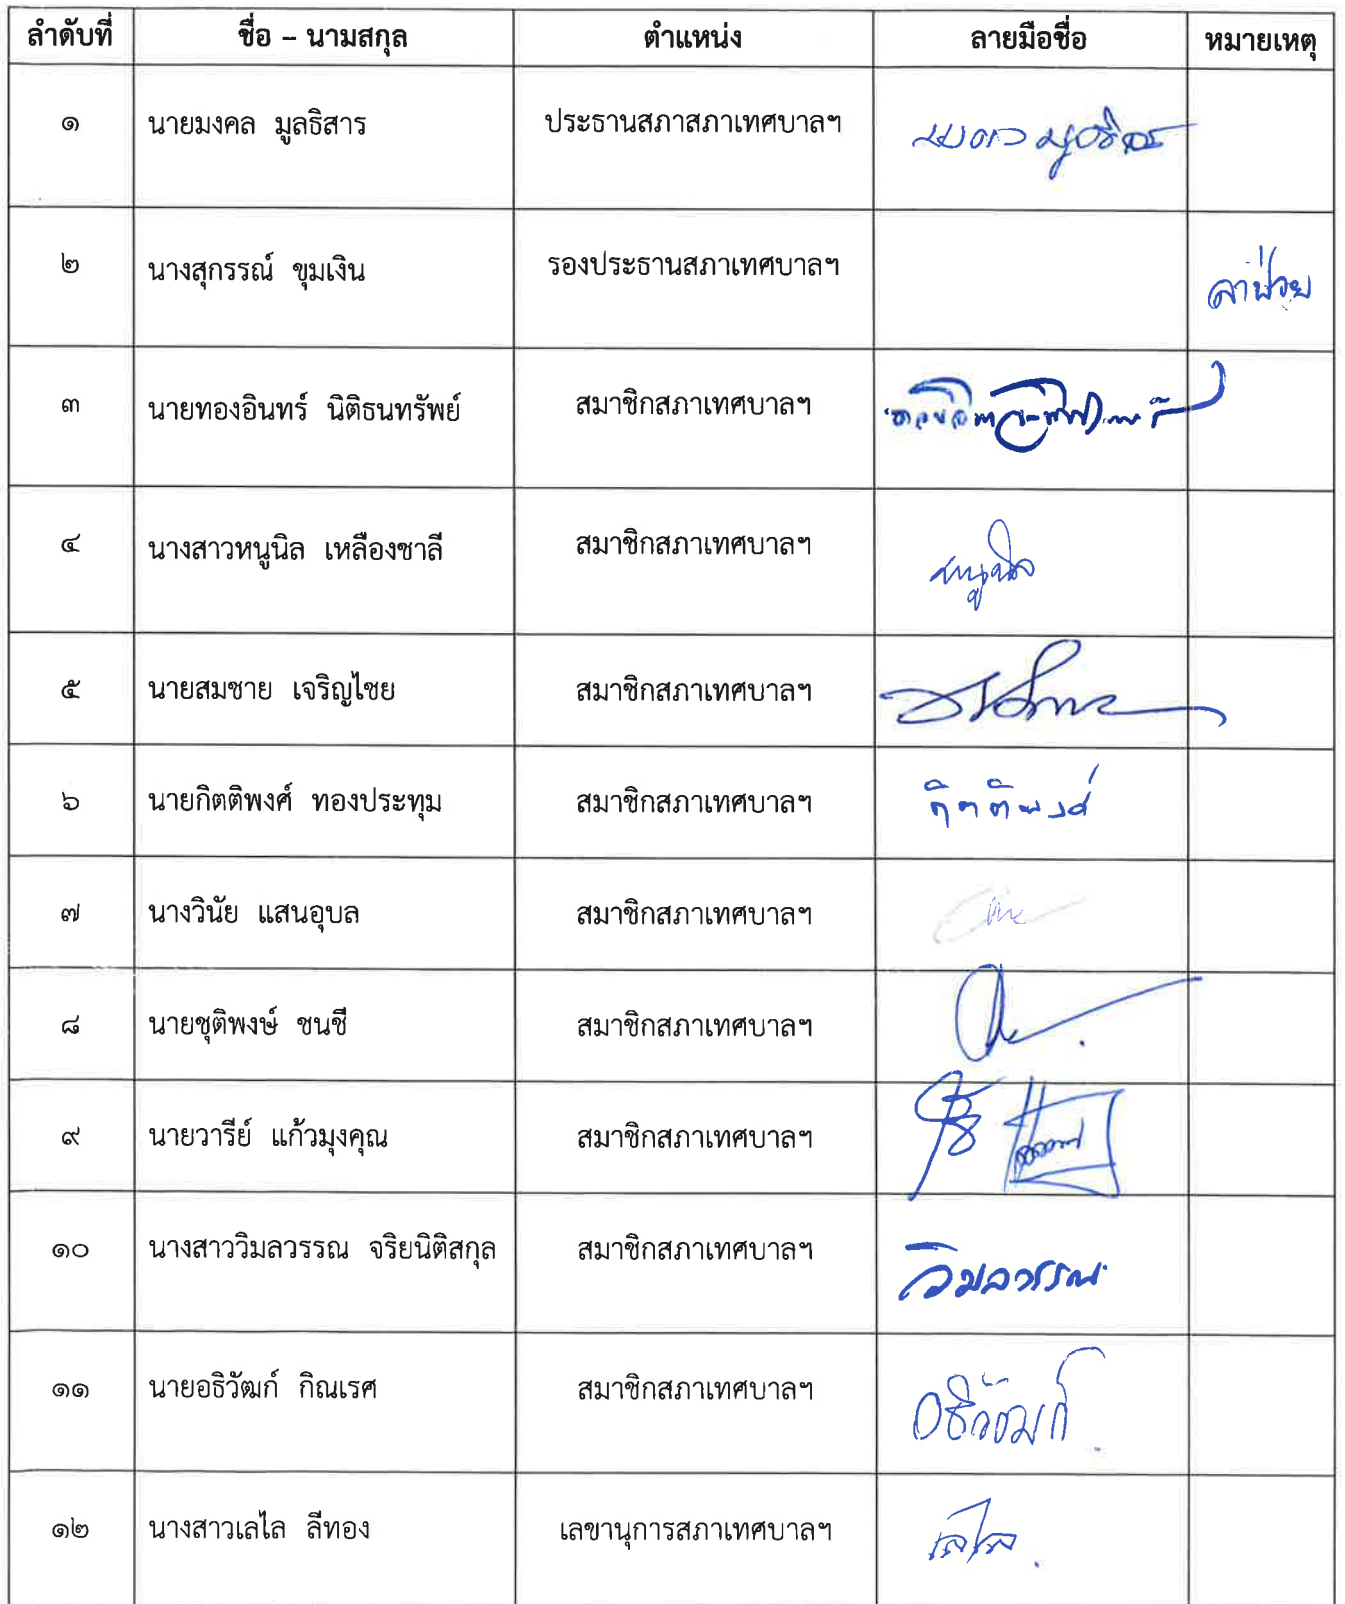 ลำดับที่ ชื่อ – นามสกุล ตำแหน่ง ลายมือชื่อ หมายเหตุ
๑ นายมงคล มูลธิสาร ประธานสภาสภาเทศบาลฯ มงคล มูลธิสาร
๒ นางสุกรรณ์ ขุมเงิน รองประธานสภาเทศบาลฯ ลาป่วย
๓ นายทองอินทร์ นิติธนทรัพย์ สมาชิกสภาเทศบาลฯ
๔ นางสาวหนูนิล เหลืองชาลี สมาชิกสภาเทศบาลฯ หนูนิล
๕ นายสมชาย เจริญไชย สมาชิกสภาเทศบาลฯ
๖ นายกิตติพงศ์ ทองประทุม สมาชิกสภาเทศบาลฯ กิตติพงศ์
๗ นางวินัย แสนอุบล สมาชิกสภาเทศบาลฯ
๘ นายชุติพงษ์ ชนชี สมาชิกสภาเทศบาลฯ
๙ นายวารีย์ แก้วมุงคุณ สมาชิกสภาเทศบาลฯ
๑๐ นางสาววิมลวรรณ จริยนิติสกุล สมาชิกสภาเทศบาลฯ วิมลวรรณ
๑๑ นายอธิวัฒก์ กิณเรศ สมาชิกสภาเทศบาลฯ อธิวัฒก์
๑๒ นางสาวเลไล ลีทอง เลขานุการสภาเทศบาลฯ เลไล